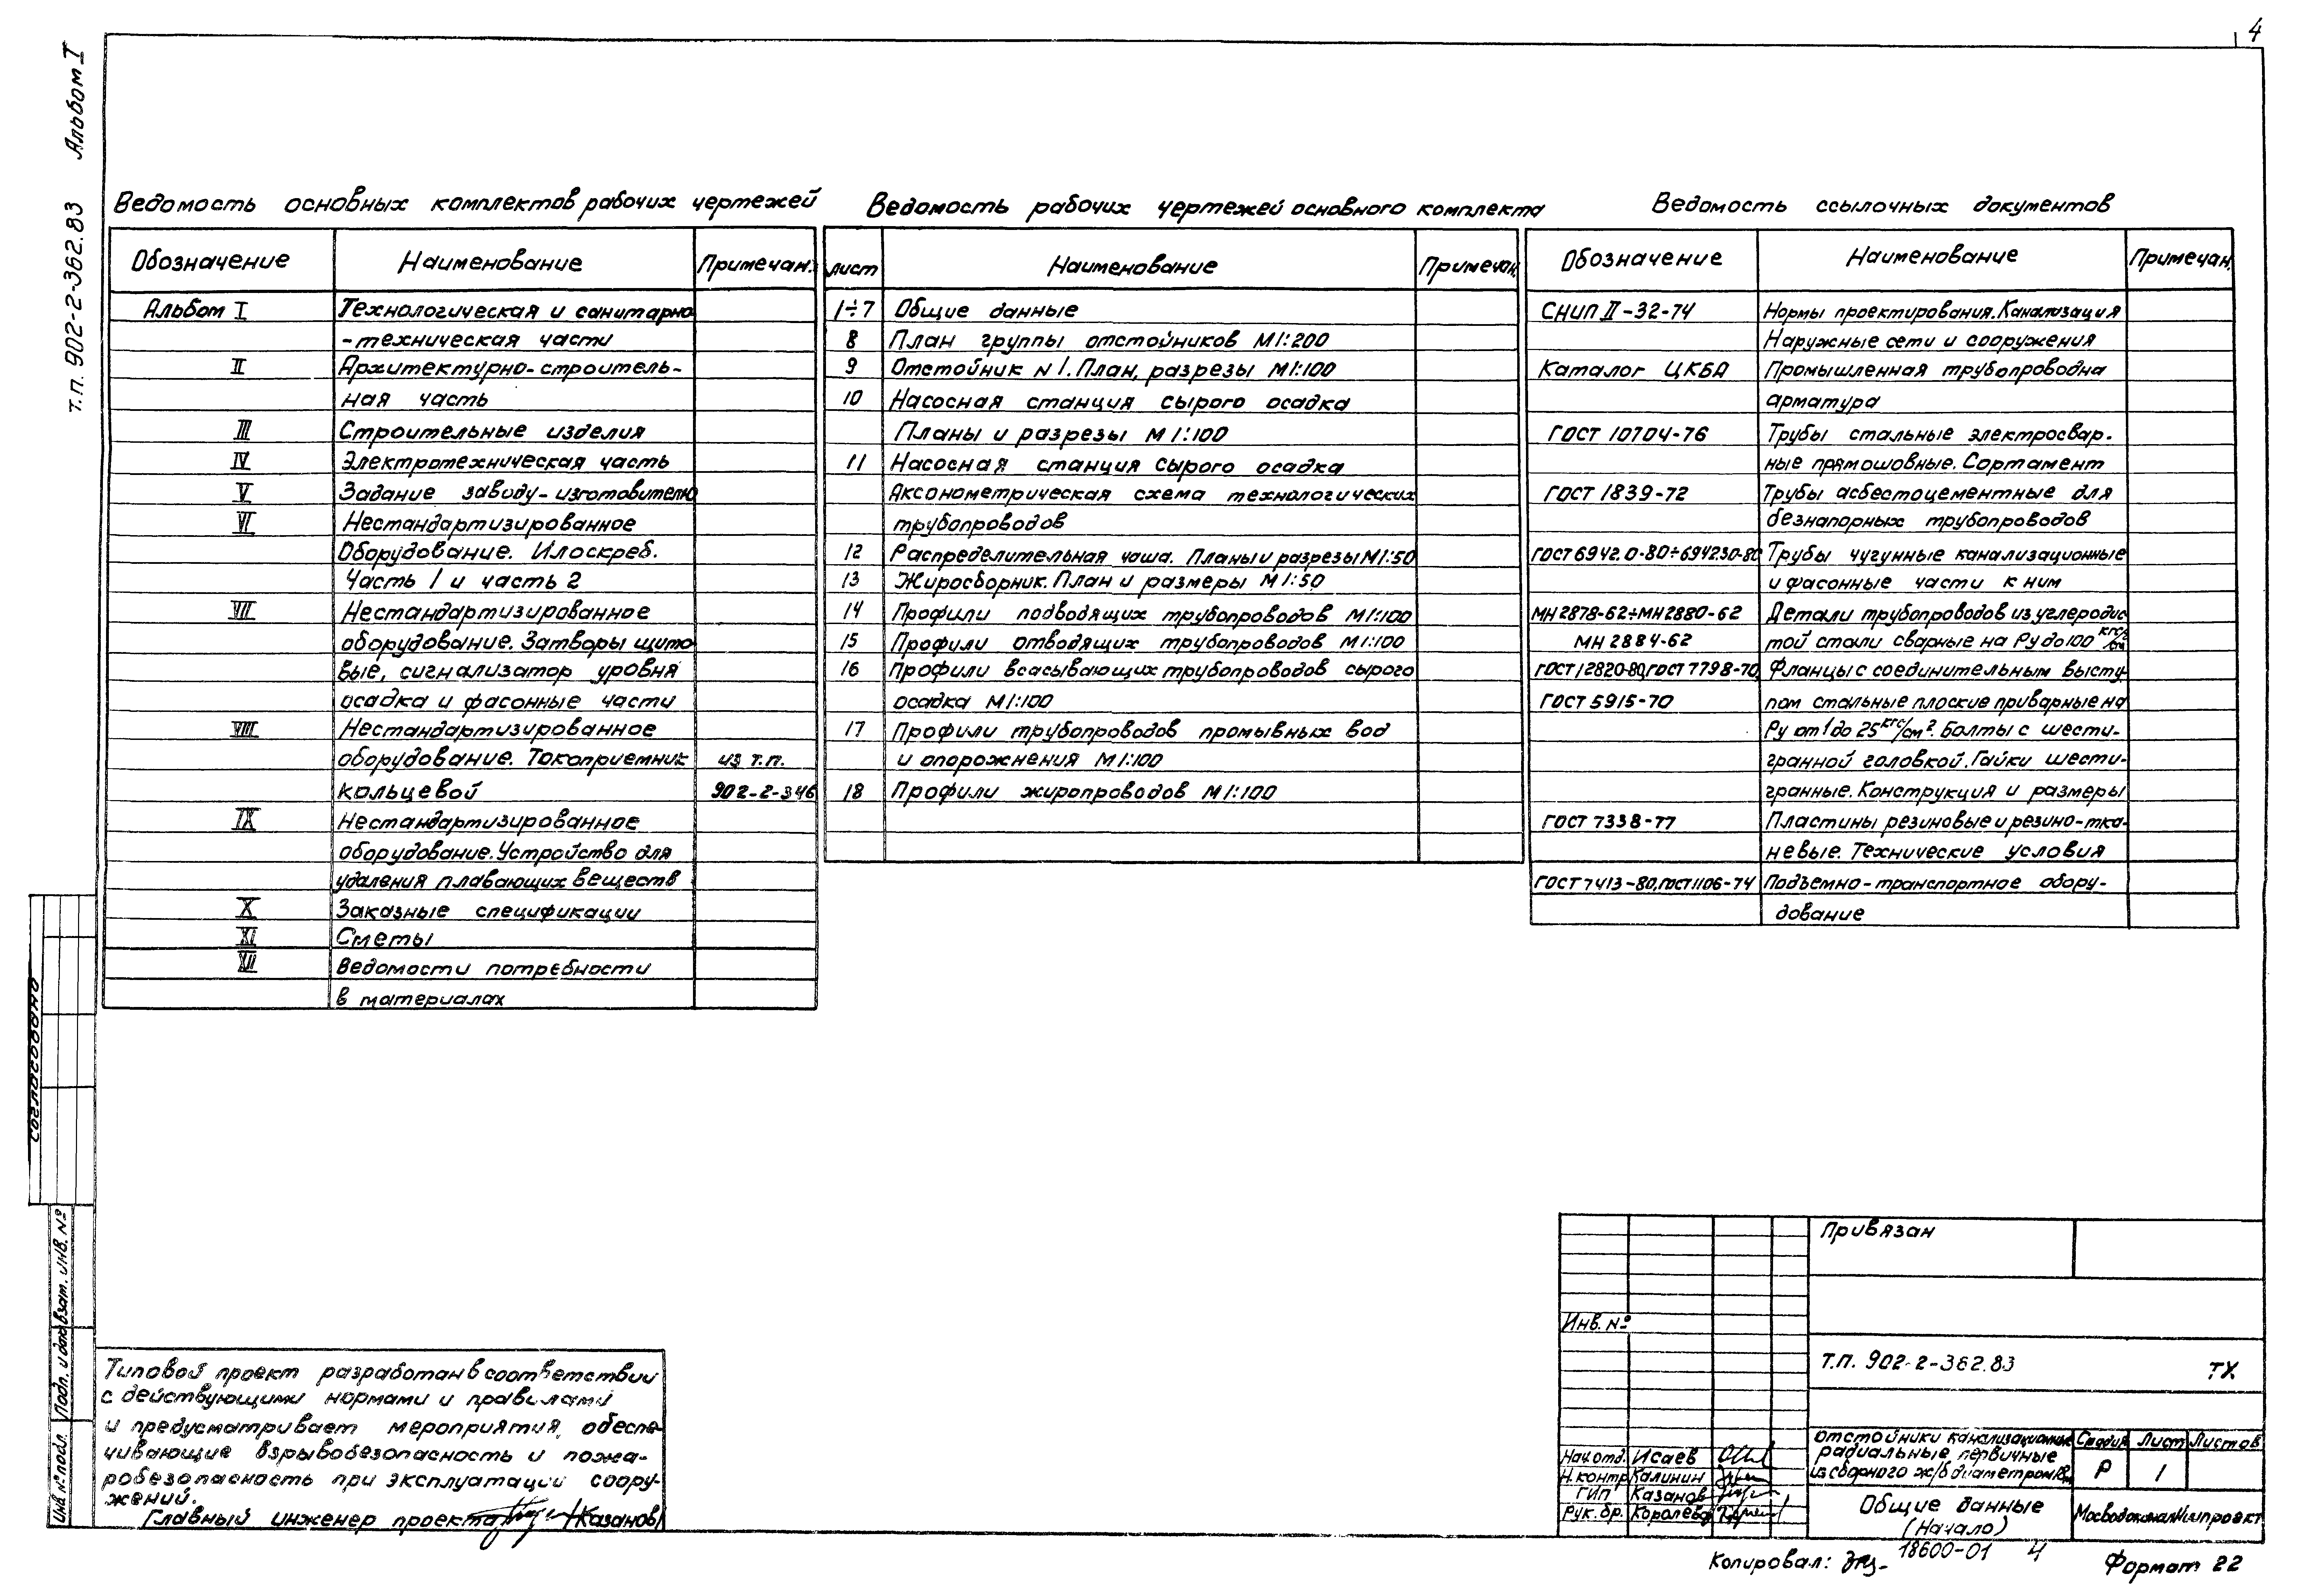 4
т.п. 902-2-362.83 Альбом I
Ведомость основных комплектов рабочих чертежей
Обозначение Наименование Примечан.
Альбом I Технологическая и санитарно
-техническая части
II Архитектурно-строитель-
ная часть
III Строительные изделия
IV Электротехническая часть
V Задание заводу-изготовителю
VI Нестандартизированное
Оборудование. Илоскреб.
Часть 1 и часть 2
VII Нестандартизированное
оборудование. Затворы щито
вые, сигнализатор уровня
осадка и фасонные части
VIII Нестандартизированное
оборудование. Токоприемник из т.п.
кольцевой 902-2-346
IX Нестандартизированное
оборудование. Устройство для
удаления плавающих веществ
X Заказные спецификации
XI Сметы
XII Ведомости потребности
в материалах
Ведомость рабочих чертежей основного комплекта
лист Наименование Примечан.
1÷7 Общие данные
8 План группы отстойников М1:200
9 Отстойник N1. План, разрезы М1:100
10 Насосная станция сырого осадка
Планы и разрезы М1:100
11 Насосная станция сырого осадка
Аксонометрическая схема технологических
трубопроводов
12 Распределительная чаша. Планы и разрезы М1:50
13 Жиросборник. План и размеры М1:50
14 Профили подводящих трубопроводов М1:100
15 Профили отводящих трубопроводов М1:100
16 Профили всасывающих трубопроводов сырого
осадка М1:100
17 Профили трубопроводов промывных вод
и опорожнения М1:100
18 Профили жиропроводов М1:100
Ведомость ссылочных документов
Обозначение Наименование Примечан.
СНиП II-32-74 Нормы проектирования. Канализация
Наружные сети и сооружения
Каталог ЦКБА Промышленная трубопроводна
арматура
ГОСТ 10704-76 Трубы стальные электросвар.
ные прямошовные. Сортамент
ГОСТ 1839-72 Трубы асбестоцементные для
безнапорных трубопроводов
ГОСТ 6942.0-80÷6942.30-80 Трубы чугунные канализационные
и фасонные части к ним
МН 2878-62÷МН 2880-62 Детали трубопроводов из углеродис
МН 2884-62 той стали сварные на Ру до 100 кгс/см
ГОСТ 12820-80, ГОСТ 7798-70, Фланцы с соединительным высту
ГОСТ 5915-70 пом стальные плоские приварные на
Ру от 1 до 25 кгс/см². Болты с шести-
гранной головкой. Гайки шести-
гранные. Конструкция и размеры
ГОСТ 7338-77 Пластины резиновые и резино-тка-
невые. Технические условия
ГОСТ 7413-80, ГОСТ 1106-74 Подъемно-транспортное обору-
дование
Согласовано
Инв. № подл. Подп. и дата Взат. инв. №
Типовой проект разработан в соответствии
с действующими нормами и правилами
и предусматривает мероприятия, обеспе-
чивающие взрывобезопасность и пожа-
робезопасность при эксплуатации соору-
жений.
Главный инженер проекта /Казанов/
Привязан
Инв. №
Т.П. 902-2-362.83 ТХ
Нач.отд. Исаев
Н.контр Калинин
ГИП Казанов
Рук.бр. Королева
отстойники канализационные
радиальные первичные
из сборного ж/б диаметром 18м
Стадия Лист Листов
Р 1
Общие данные
(Начало)
МосводоканалНИИпроект
Копировал: 18600-01 4 Формат 22